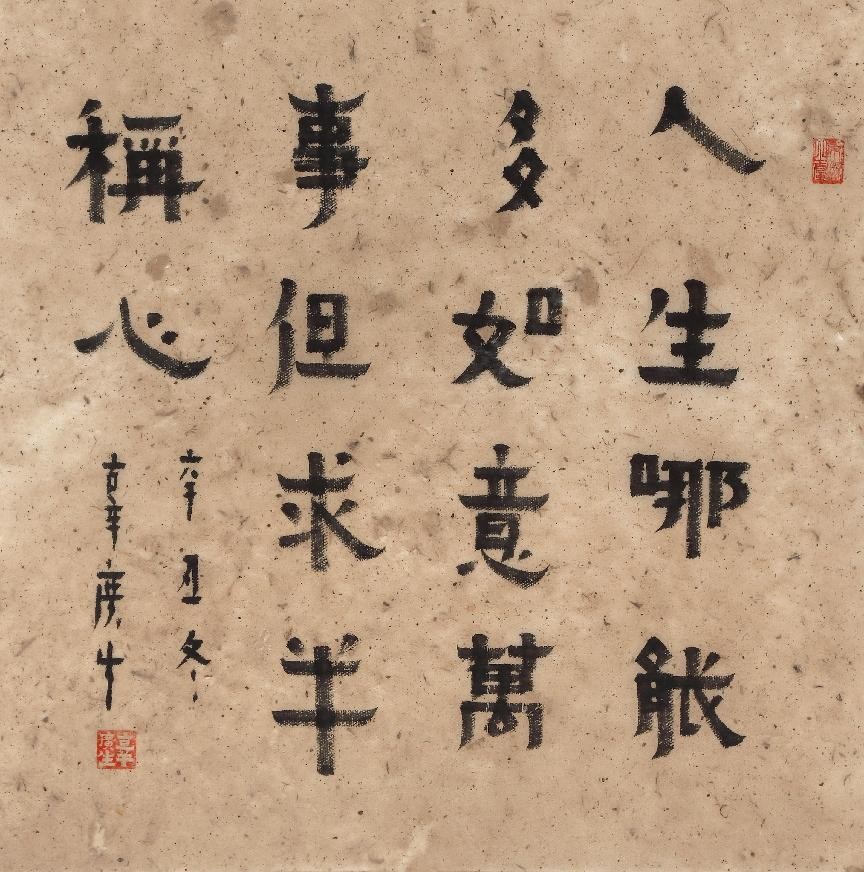 人生哪能
多如意萬
事但求半
稱心
辛丑冬